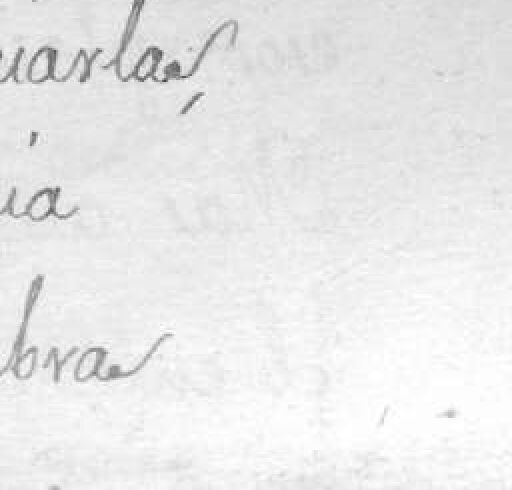 uarla,
ia
bra